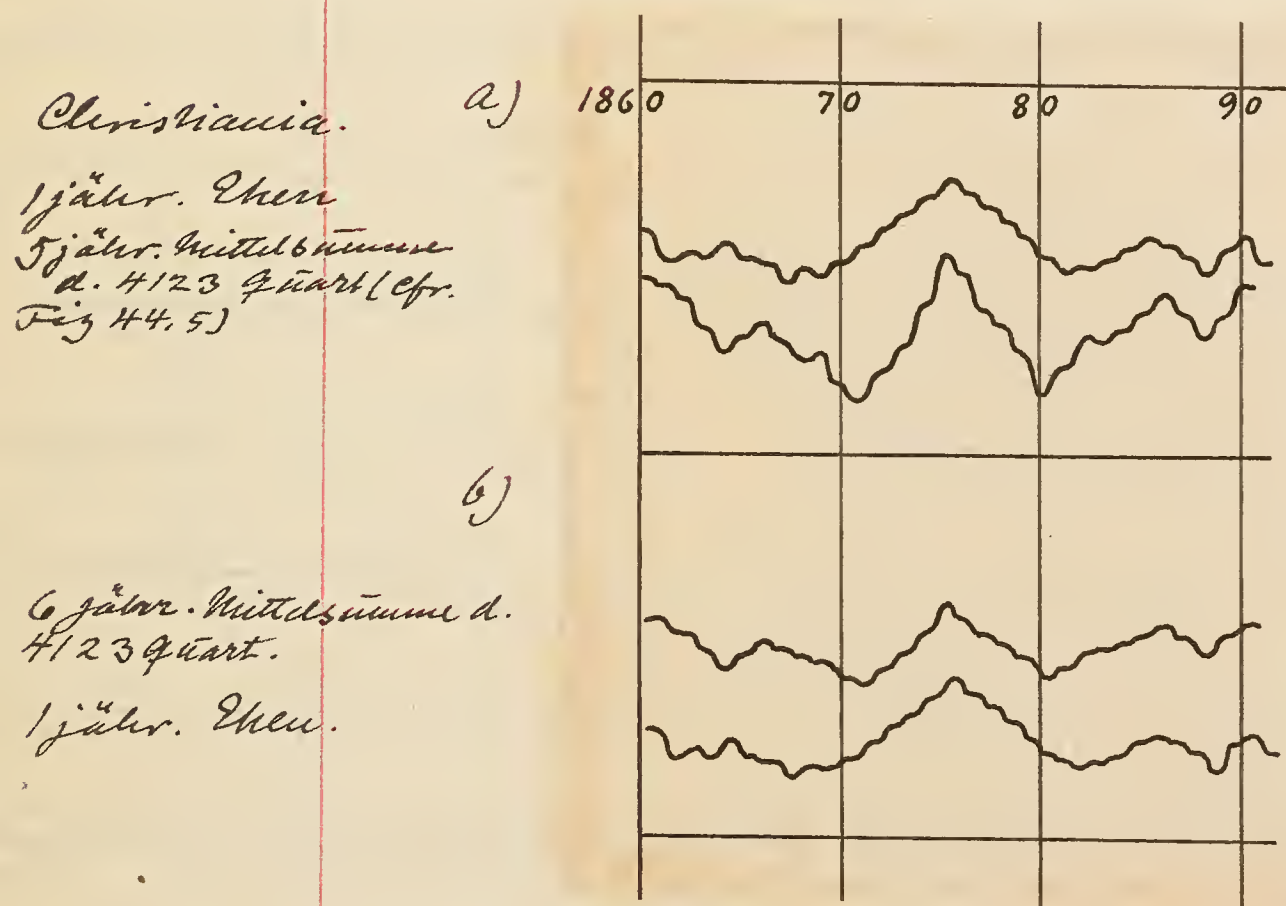 Christiania.
a)
1860 70 80 90
1 jähr. Ehen
5 jähr. Mittelsumme
d. 4123 Quart (cfr.
Fig 44, 5)
b)
6 jähr. Mittelsumme d.
4123 Quart.
1 jähr. Ehen.